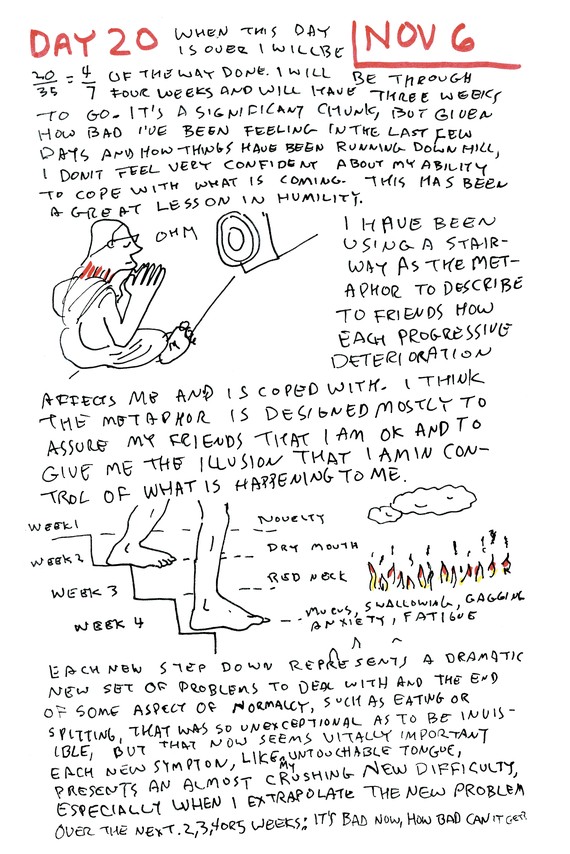 DAY 20
WHEN THIS DAY
IS OVER I WILL BE
NOV 6
20/35 = 4/7 OF THE WAY DONE. I WILL BE THROUGH
FOUR WEEKS AND WILL HAVE THREE WEEKS
TO GO. IT'S A SIGNIFICANT CHUNK, BUT GIVEN
HOW BAD I'VE BEEN FEELING IN THE LAST FEW
DAYS AND HOW THINGS HAVE BEEN RUNNING DOWNHILL,
I DON'T FEEL VERY CONFIDENT ABOUT MY ABILITY
TO COPE WITH WHAT IS COMING. THIS HAS BEEN
A GREAT LESSON IN HUMILITY.
OHM
I HAVE BEEN
USING A STAIR-
WAY AS THE MET-
APHOR TO DESCRIBE
TO FRIENDS HOW
EACH PROGRESSIVE
DETERIORATION
AFFECTS ME AND IS COPED WITH. I THINK
THE METAPHOR IS DESIGNED MOSTLY TO
ASSURE MY FRIENDS THAT I AM OK AND TO
GIVE ME THE ILLUSION THAT I AM IN CON-
TROL OF WHAT IS HAPPENING TO ME.
WEEK 1
NOVELTY
WEEK 2
DRY MOUTH
WEEK 3
RED NECK
WEEK 4
MUCUS, SWALLOWING, GAGGING
ANXIETY, FATIGUE
EACH NEW STEP DOWN REPRESENTS A DRAMATIC
NEW SET OF PROBLEMS TO DEAL WITH AND THE END
OF SOME ASPECT OF NORMALCY, SUCH AS EATING OR
SPITTING, THAT WAS SO UNEXCEPTIONAL AS TO BE INVIS-
IBLE, BUT THAT NOW SEEMS VITALLY IMPORTANT
EACH NEW SYMPTON, LIKE MY UNTOUCHABLE TONGUE,
PRESENTS AN ALMOST CRUSHING NEW DIFFICULTY,
ESPECIALLY WHEN I EXTRAPOLATE THE NEW PROBLEM
OVER THE NEXT 2,3,4 OR 5 WEEKS: IT'S BAD NOW, HOW BAD CAN IT GET?